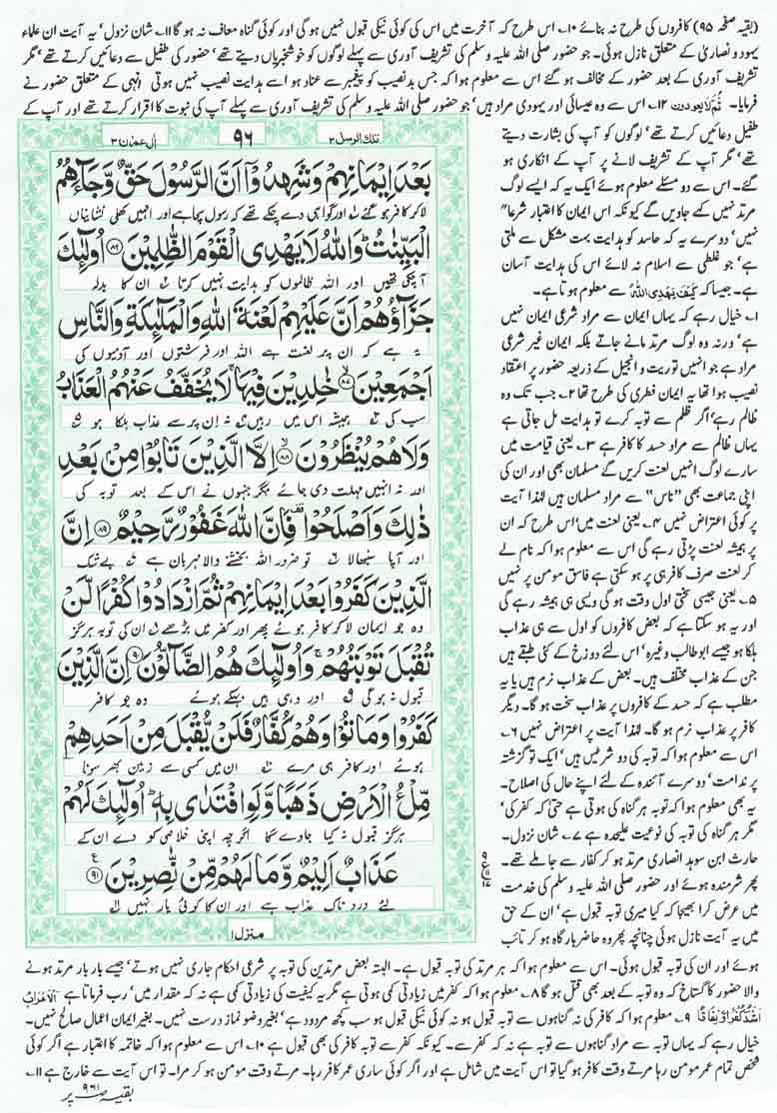 (بقیہ صفحہ ۹۵) کافروں کی طرح نہ بنائے ۱۰۔ اس طرح کہ آخرت میں اس کی کوئی نیکی قبول نہیں ہو گی اور کوئی گناہ معاف نہ ہو گا ۱۱۔ شان نزول' یہ آیت ان علماء
یہود و نصاریٰ کے متعلق نازل ہوئی۔ جو حضور صلی اللہ علیہ وسلم کی تشریف آوری سے پہلے لوگوں کو خوشخبریاں دیتے تھے' حضور کی طفیل سے دعائیں کرتے تھے' مگر
تشریف آوری کے بعد حضور کے مخالف ہو گئے اس سے معلوم ہوا کہ جس بدنصیب کو پیغمبر سے عناد ہو اسے ہدایت نصیب نہیں ہوتی انہی کے متعلق حضور نے
فرمایا۔ ثُمَّ لَا یَعُودُونَ ۱۲۔ اس سے وہ عیسائی اور یہودی مراد ہیں' جو حضور صلی اللہ علیہ وسلم کی تشریف آوری سے پہلے آپ کی نبوت کا اقرار کرتے تھے اور آپ کے
طفیل دعائیں کرتے تھے' لوگوں کو آپ کی بشارت دیتے
تھے' مگر آپ کے تشریف لانے پر آپ کے انکاری ہو
گئے۔ اس سے دو مسئلے معلوم ہوئے ایک یہ کہ ایسے لوگ
مرتد نہیں کہے جاویں گے کیونکہ اس ایمان کا اعتبار شرعاً
نہیں' دوسرے یہ کہ حاسد کو ہدایت بہت مشکل سے ملتی
ہے' جو غلطی سے اسلام نہ لائے اس کی ہدایت آسان
ہے۔ جیسا کہ كَيْفَ يَهْدِي اللهُ سے معلوم ہوتا ہے۔
۱۔ خیال رہے کہ یہاں ایمان سے مراد شرعی ایمان نہیں
ہے' ورنہ وہ لوگ مرتد مانے جاتے بلکہ ایمان غیر شرعی
مراد ہے جو انہیں توریت و انجیل کے ذریعہ حضور پر اعتقاد
نصیب ہوا تھا یہ ایمان فطری کی طرح تھا ۲۔ جب تک وہ
ظالم رہے' اگر ظلم سے توبہ کرے تو ہدایت مل جاتی ہے
یہاں ظالم سے مراد حسد کا کافر ہے ۳۔ یعنی قیامت میں
سارے لوگ انہیں لعنت کریں گے مسلمان بھی اور ان کی
اپنی جماعت بھی ”ناس“ سے مراد مسلمان ہیں لہٰذا آیت
پر کوئی اعتراض نہیں ۴۔ یعنی لعنت میں' اس طرح کہ ان
پر ہمیشہ لعنت پڑتی رہے گی اس سے معلوم ہوا کہ نام لے
کر لعنت صرف کافر ہی پر ہو سکتی ہے فاسق مومن پر نہیں
۵۔ یعنی جیسی سختی اول وقت ہو گی ویسی ہی ہمیشہ رہے گی
اور یہ ہو سکتا ہے کہ بعض کافروں کو اول سے ہی عذاب
ہلکا ہو جیسے ابوطالب وغیرہ' اس لئے دوزخ کے کئی طبقے ہیں
جن کے عذاب مختلف ہیں۔ بعض کے عذاب نرم ہیں یا یہ
مطلب ہے کہ حسد کے کافروں پر عذاب سخت ہو گا۔ دیگر
کافر پر عذاب نرم ہو گا۔ لہٰذا آیت پر اعتراض نہیں ۶۔
اس سے معلوم ہوا کہ توبہ کی دو شرطیں ہیں' ایک تو گزشتہ
پر ندامت' دوسرے آئندہ کے لئے اپنے حال کی اصلاح۔
یہ بھی معلوم ہوا کہ توبہ ہر گناہ کی ہوتی ہے حتیٰ کہ کفر کی'
مگر ہر گناہ کی توبہ کی نوعیت علیحدہ ہے ۷۔ شان نزول۔
حارث ابن سوید انصاری مرتد ہو کر کفار سے جا ملے تھے۔
پھر شرمندہ ہوئے اور حضور صلی اللہ علیہ وسلم کی خدمت
میں عرض کرا بھیجا کہ کیا میری توبہ قبول ہے' ان کے حق
میں یہ آیت نازل ہوئی چنانچہ پھر وہ حاضر بارگاہ ہو کر تائب
تلك الرسل ۳ ۹۶ اٰل عمران ۳
بَعْدَ اِيْمَانِهِمْ وَشَهِدُوْۤا اَنَّ الرَّسُوْلَ حَقٌّ وَّجَآءَهُمُ
لاکر کافر ہو گئے اور گواہی دے چکے تھے کہ رسول سچا ہے اور انہیں کھلی نشانیاں
الْبَيِّنٰتُ ؕ وَاللّٰهُ لَا يَهْدِى الْقَوْمَ الظّٰلِمِيْنَ ﴿۸۶﴾ اُولٰٓئِكَ
آ چکی تھیں اور اللہ ظالموں کو ہدایت نہیں کرتا ان کا بدلہ
جَزَآؤُهُمْ اَنَّ عَلَيْهِمْ لَعْنَةَ اللّٰهِ وَالْمَلٰٓئِكَةِ وَالنَّاسِ
یہ ہے کہ ان پر لعنت ہے اللہ اور فرشتوں اور آدمیوں کی
اَجْمَعِيْنَ ﴿۸۷﴾ خٰلِدِيْنَ فِيْهَا ۚ لَا يُخَفَّفُ عَنْهُمُ الْعَذَابُ
سب کی ہمیشہ اس میں رہیں نہ ان پر سے عذاب ہلکا ہو
وَلَا هُمْ يُنْظَرُوْنَ ﴿۸۸﴾ اِلَّا الَّذِيْنَ تَابُوْا مِنْۢ بَعْدِ
اور نہ انہیں مہلت دی جائے مگر جنہوں نے اس کے بعد توبہ کی
ذٰلِكَ وَاَصْلَحُوْا ۫ فَاِنَّ اللّٰهَ غَفُوْرٌ رَّحِيْمٌ ﴿۸۹﴾ اِنَّ
اور آپا سنبھالا تو ضرور اللہ بخشنے والا مہربان ہے بے شک
الَّذِيْنَ كَفَرُوْا بَعْدَ اِيْمَانِهِمْ ثُمَّ ازْدَادُوْا كُفْرًا لَّنْ
وہ جو ایمان لاکر کافر ہوئے پھر اور کفر میں بڑھے ان کی توبہ ہرگز
تُقْبَلَ تَوْبَتُهُمْ ۚ وَاُولٰٓئِكَ هُمُ الضَّآلُّوْنَ ﴿۹۰﴾ اِنَّ الَّذِيْنَ
قبول نہ ہوگی اور وہی ہیں بہکے ہوئے وہ جو کافر
كَفَرُوْا وَمَاتُوْا وَهُمْ كُفَّارٌ فَلَنْ يُّقْبَلَ مِنْ اَحَدِهِمْ
ہوئے اور کافر ہی مرے ان میں کسی سے زمین بھر سونا
مِّلْءُ الْاَرْضِ ذَهَبًا وَّلَوِ افْتَدٰى بِهٖ ؕ اُولٰٓئِكَ لَهُمْ
ہرگز قبول نہ کیا جاوے گا اگرچہ اپنی خلاصی کو دے ان کے
عَذَابٌ اَلِيْمٌ وَّمَا لَهُمْ مِّنْ نّٰصِرِيْنَ ﴿۹۱﴾ ع
لئے دردناک عذاب ہے اور ان کا کوئی یار نہیں
منزل ۱
ہوئے اور ان کی توبہ قبول ہوئی۔ اس سے معلوم ہوا کہ ہر مرتد کی توبہ قبول ہے۔ البتہ بعض مرتدین کی توبہ پر شرعی احکام جاری نہیں ہوتے' جیسے بار بار مرتد ہونے
والا حضور کا گستاخ کہ وہ توبہ کے بعد بھی قتل ہو گا ۸۔ معلوم ہوا کہ کفر میں زیادتی کمی ہوتی ہے مگر یہ کیفیت کی زیادتی کمی ہے نہ کہ مقدار میں' رب فرماتا ہے اَلْاَعْرَابُ
اَشَدُّ كُفْرًا وَّنِفَاقًا ۹۔ معلوم ہوا کہ کافر کی نہ گناہوں سے توبہ قبول ہو نہ کوئی نیکی قبول ہو سب کچھ مردود ہے' بغیر وضو نماز درست نہیں۔ بغیر ایمان اعمال صالح نہیں۔
خیال رہے کہ یہاں توبہ سے مراد گناہوں سے توبہ ہے نہ کہ کفر سے۔ کیونکہ کفر سے توبہ کافر کی بھی قبول ہے ۱۰۔ اس سے معلوم ہوا کہ خاتمہ کا اعتبار ہے اگر کوئی
شخص تمام عمر مومن رہا مرتے وقت کافر ہو گیا تو اس آیت میں شامل ہے اور اگر کوئی ساری عمر کافر رہا۔ مرتے وقت مومن ہو کر مرا۔ تو اس آیت سے خارج ہے ۱۱۔
بقیہ صـ ۹۶۱ پر